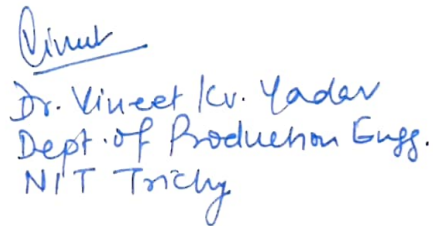 Dr. Vineet Kr. Yadav
Dept. of Production Engg.
NIT Trichy